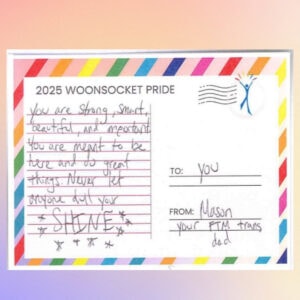 2025 WOONSOCKET PRIDE
You are strong, smart,
beautiful, and important.
You are meant to be
here and do great
things. Never let
anyone dull your
SHINE
TO: you
FROM: Mason
your FTM trans
dad